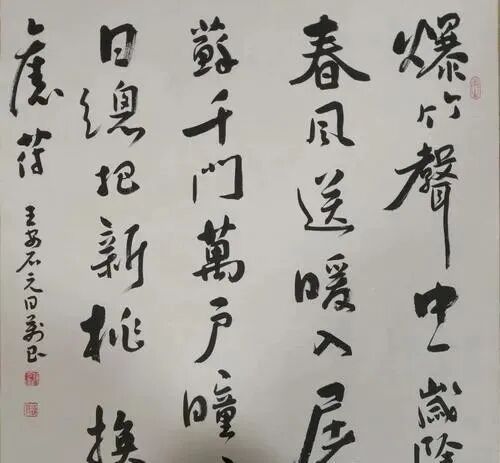 爆竹聲中一歲除
春風送暖入屠
蘇千門萬戶曈
日總把新桃換
舊符
王安石元日